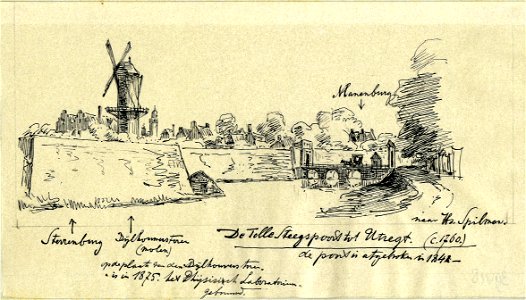 Manenburg
naar Hs. Spilman.
Sterrenburg Bijlhouwerstoren
(molen)
De Tolle Steegspoort tot Utregt. (c. 1760)
de poort is afgebroken in 184
op de plaats van den Bijlhouwerstoren
is in 1875. het Physisch Laboratorium
gebouwd.